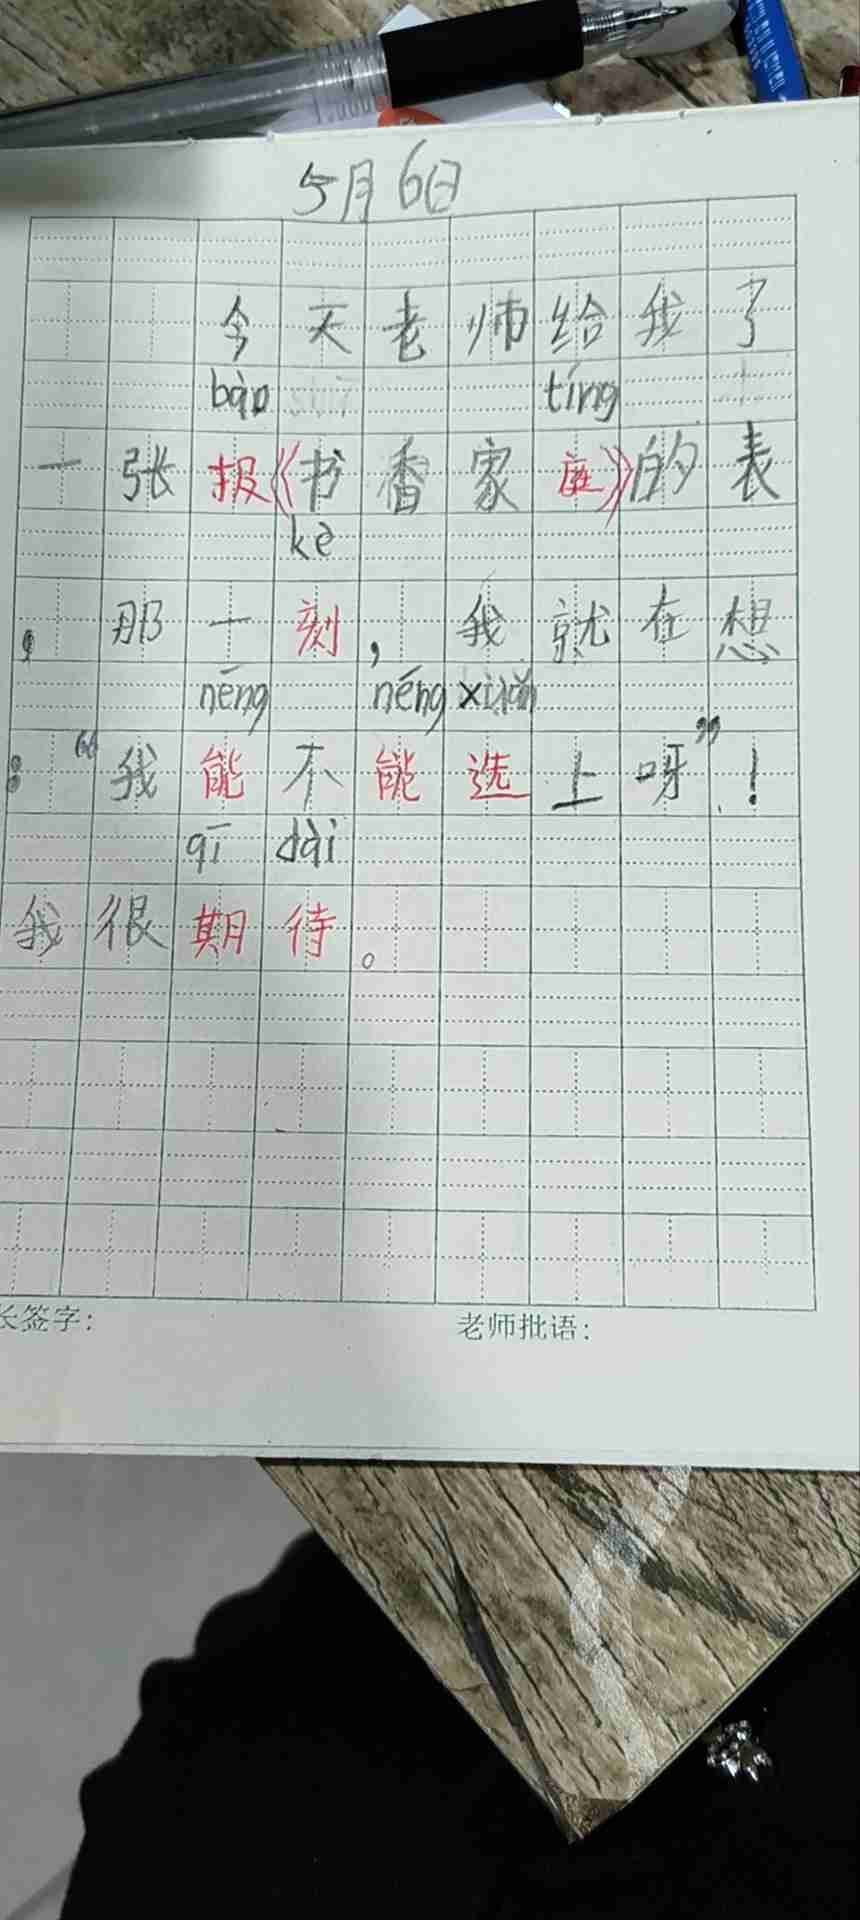 5月6日
今天老师给我了
bào tíng
一张报《书香家庭》的表
kè
，那一刻，我就在想
nēng néng xuǎn
：“我能不能选上呀”！
qī dài
我很期待。
长签字：
老师批语：